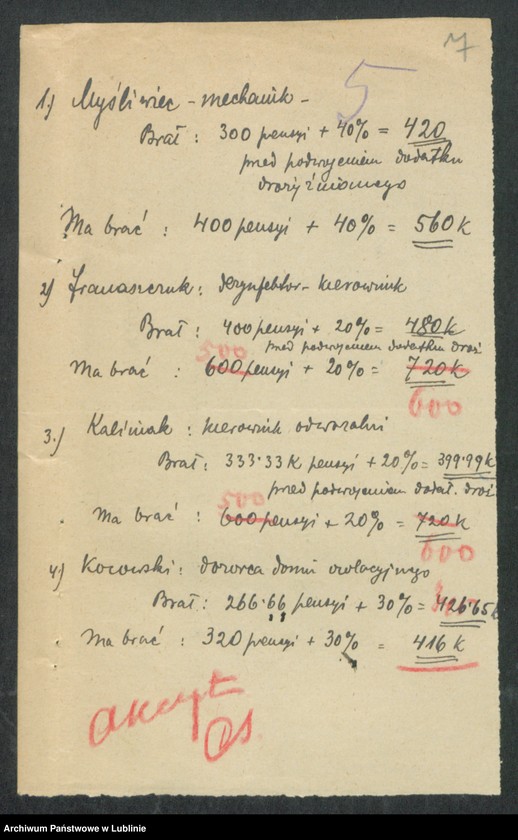 7
5
1.) Myśliwiec - mechanik -
Brał : 300 pensyi + 40% = 420
przed podwojeniem dodatku
drożyźnianego
Ma brać : 400 pensyi + 40% = 560 K
2) Franaszczuk : dezynfektor - kierownik
Brał : 400 pensyi + 20% = 480 K
przed podwojeniem dodatku droż
500
Ma brać : 600 pensyi + 20% = 720 K
600
3.) Kaliniak : kierownik odwszalni
Brał : 333.33 K pensyi + 20% = 399.99 K
przed podwojeniem dodat. droż
500
Ma brać : 600 pensyi + 20% = 720 K
600
4) Kocowski : dozorca domu izolacyjnego
Brał : 266.66 pensyi + 30% = 426.65 K
Ma brać : 320 pensyi + 30% = 416 K
Akcept
Archiwum Państwowe w Lublinie